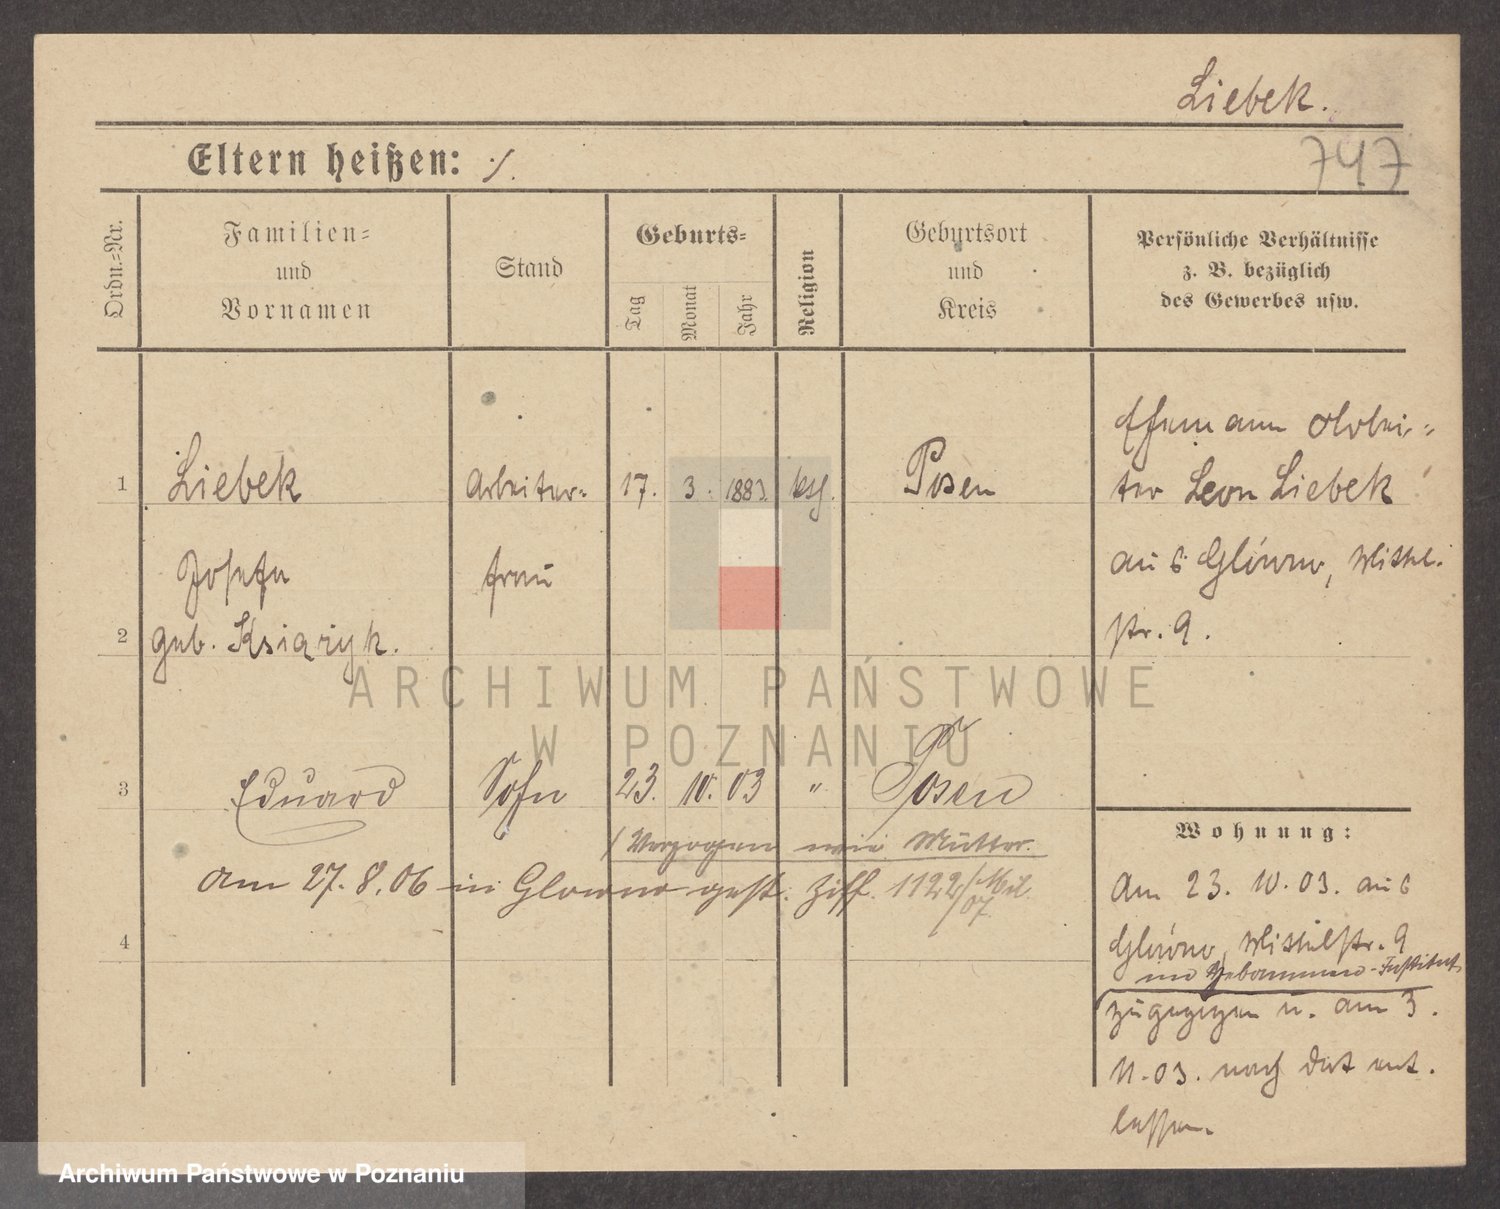 Liebek.
Eltern heißen: ./.
747
Ordn.-Nr.
Familien-
und
Vornamen
Stand
Geburts-
Tag
Monat
Jahr
Religion
Geburtsort
und
Kreis
Persönliche Verhältnisse
z. B. bezüglich
des Gewerbes usw.
Ehemann Arbei-
1 Liebek Arbeiter- 17. 3. 1883. ksl. Posen ter Leon Liebek
Josefa frau aus Glówno,
2 geb. Książyk. str. 9.
3 Eduard Sohn 23. 10. 03 " Posen
Wohnung:
(Verzogen wie Mutter.
Am 27. 8. 06 in Glowno gest. Ziff. 1122/Mel.
/07
Am 23. 10. 03. aus
4 Glówno, 9
im Hebammen-Institut
zugezogen u. am 3.
11. 03. nach dort ent.
lassen.
ARCHIWUM PAŃSTWOWE
W POZNANIU
Archiwum Państwowe w Poznaniu